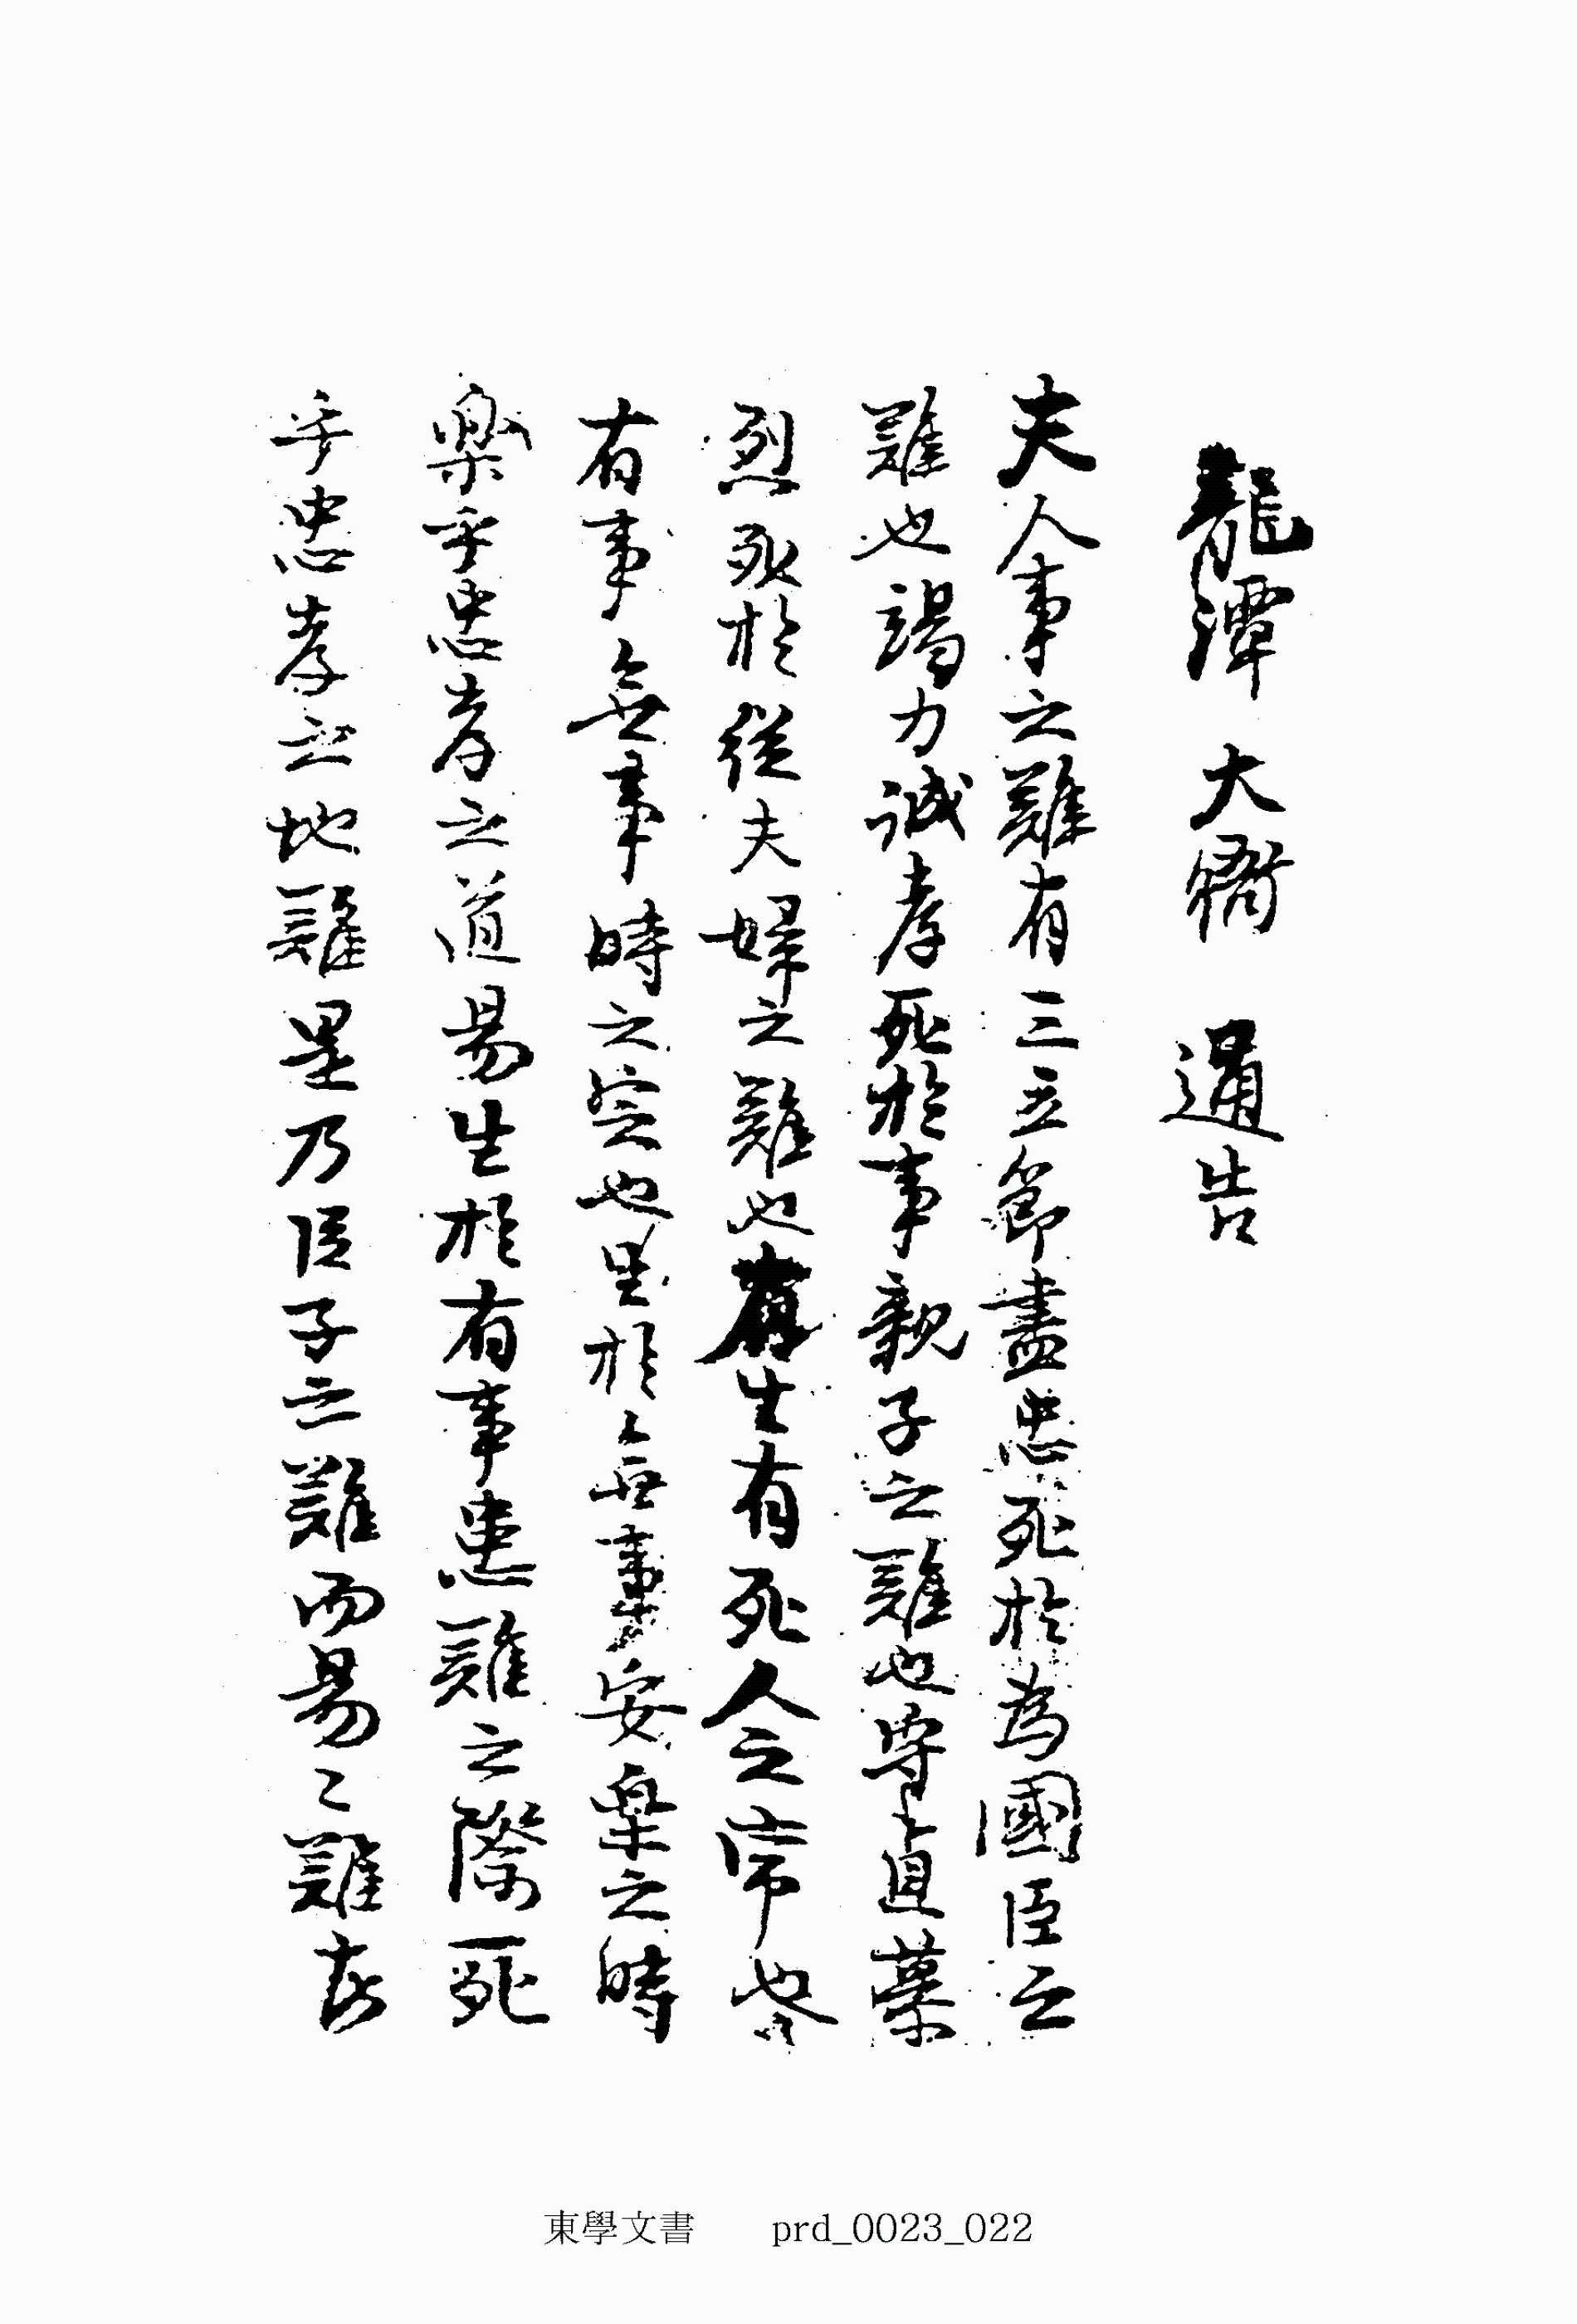 龍潭 大衙 通告
夫人事之難有三立節盡忠死於爲國臣之
難也竭力誠孝死於事親子之難也守貞慕
烈死於從夫婦之難也有生有死人之常也
有事無事時之定也生於無事安樂之時
樂乎忠孝之道易生於有事患難之際死
乎忠孝之地難是乃臣子之難而易〻難哉
東學文書 prd_0023_022